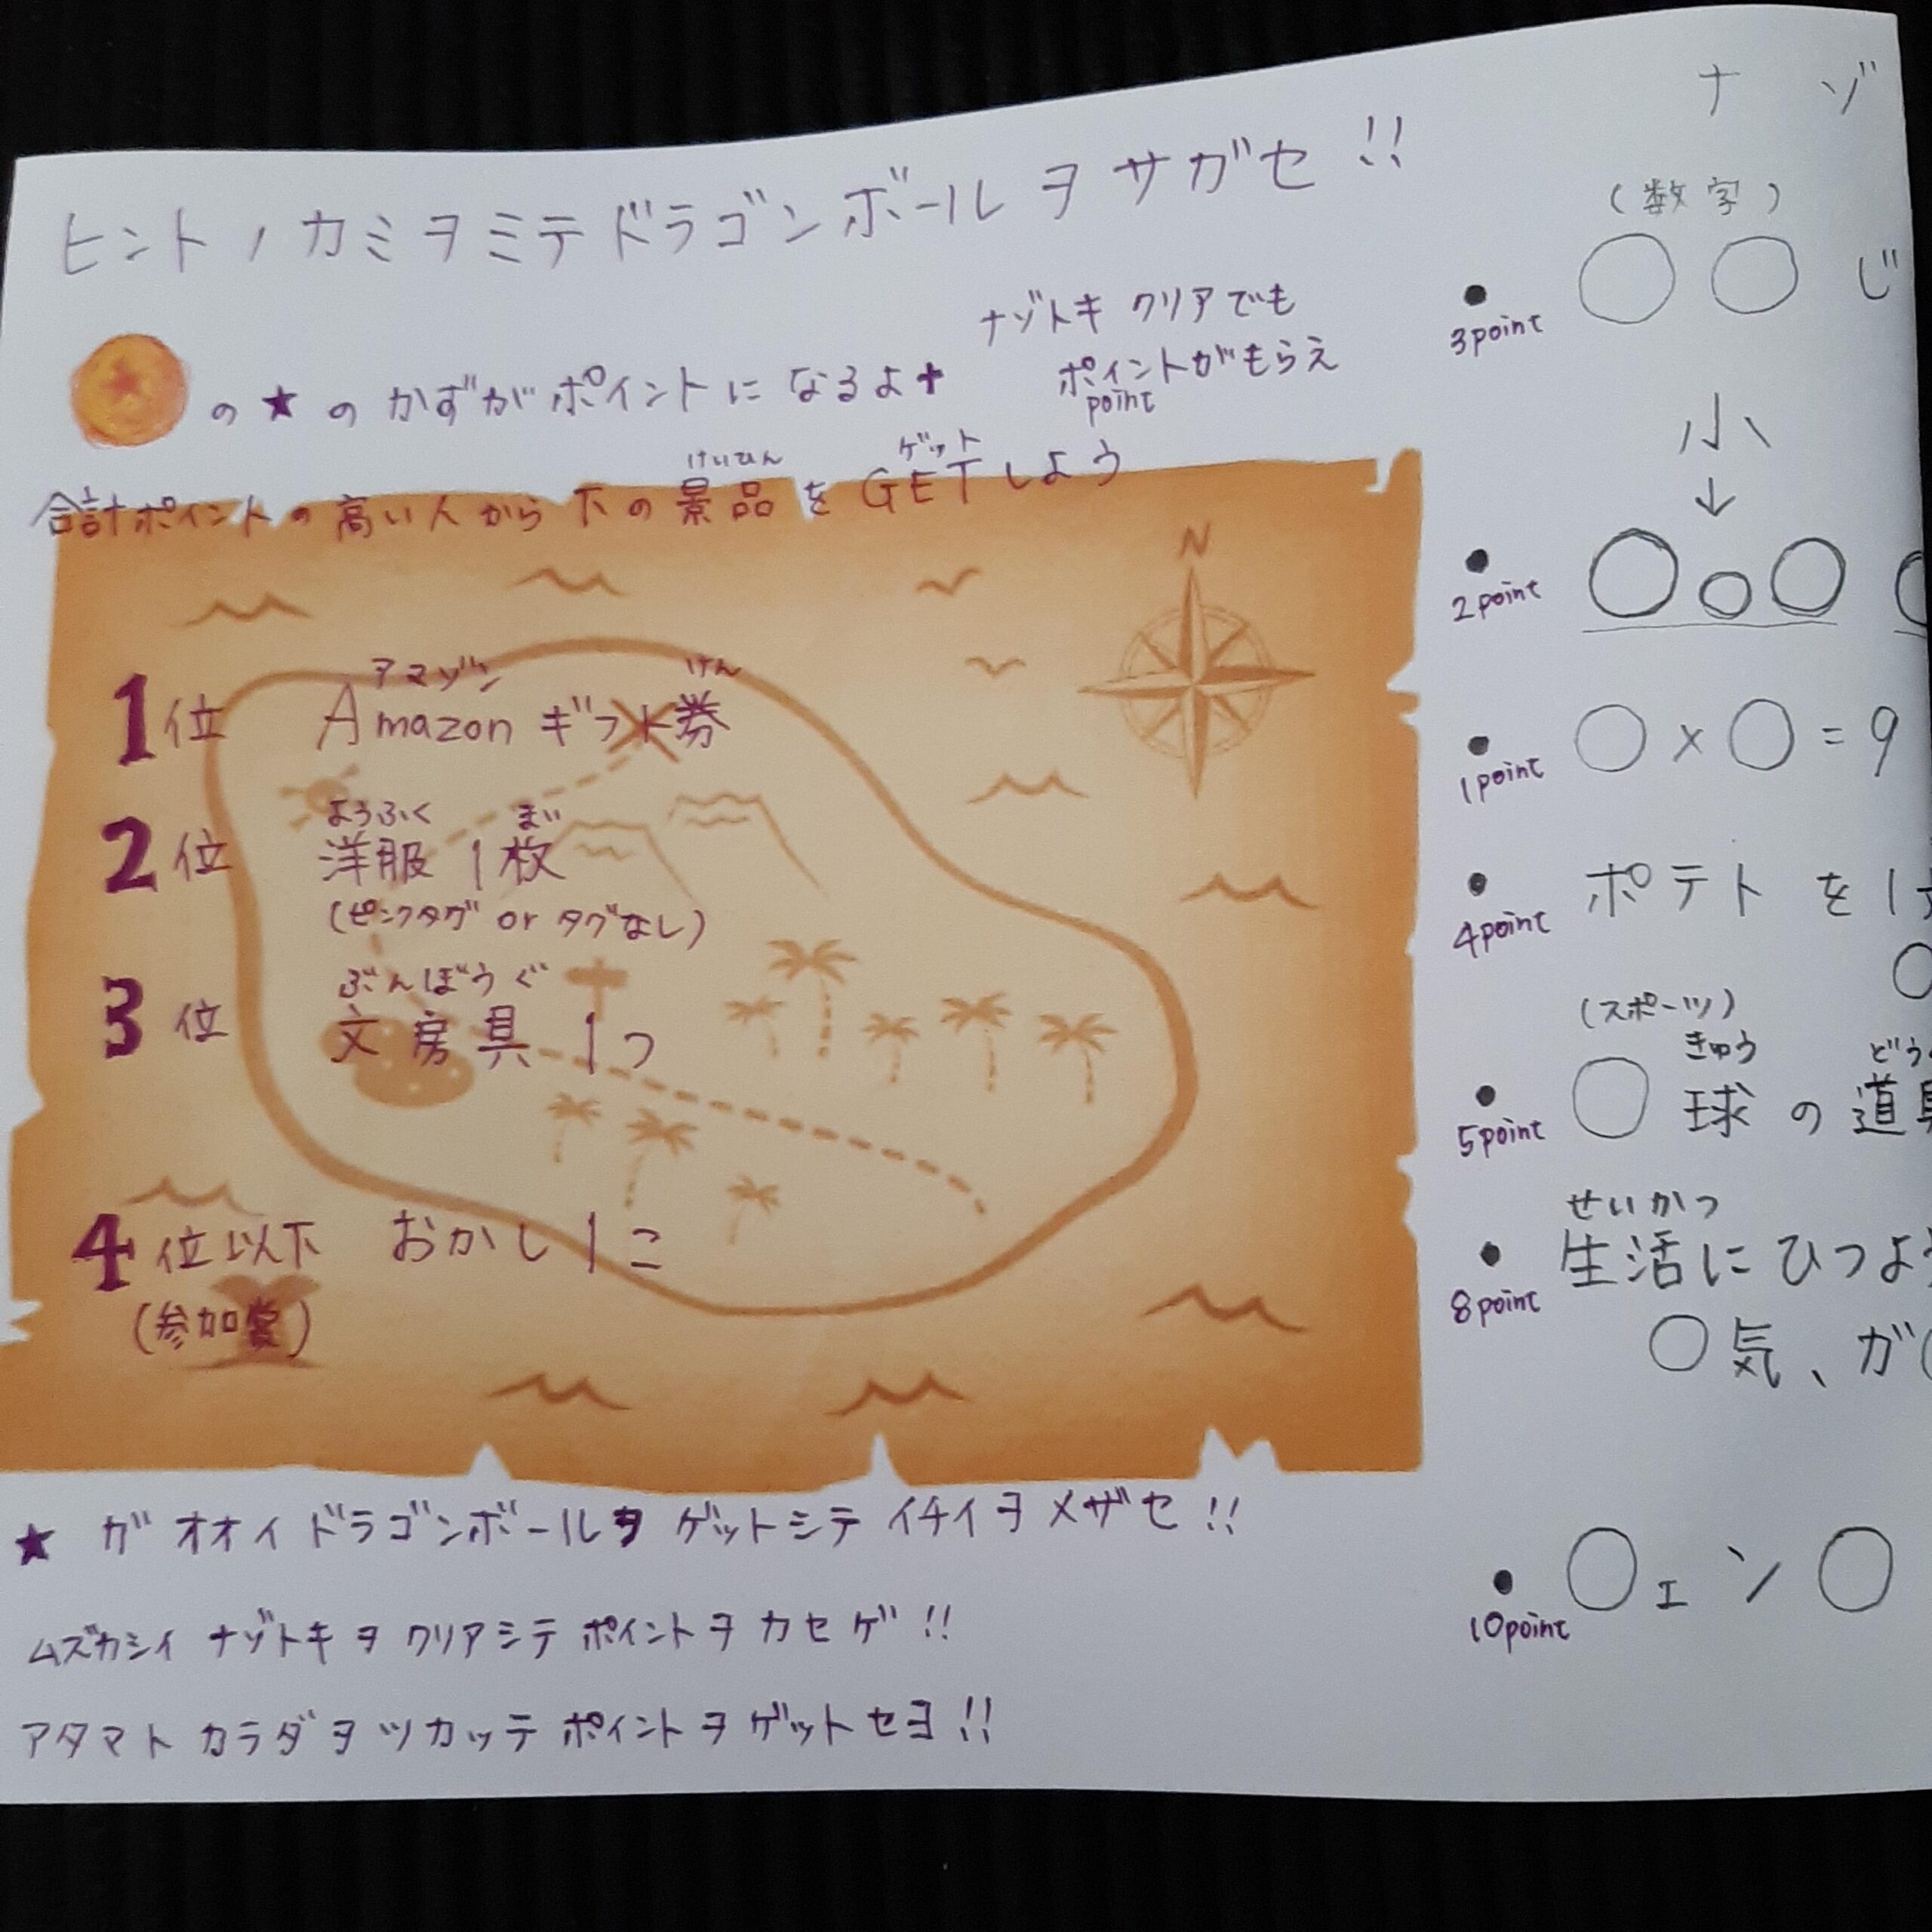 ヒントノカミヲミテドラゴンボールヲサガセ!!
の★のかずがポイントになるよ
ナゾトキ クリアでも
ポイントがもらえ
point
けいひん ゲット
合計ポイントの高い人から下の景品をGETしよう
N
アマゾン けん
1位 Amazonギフト券
ようふく まい
2位 洋服1枚
(ピンクタグ or タグなし)
ぶんぼうぐ
3位 文房具1つ
4位以下 おかし1こ
(参加賞)
★ガオオイドラゴンボールヲゲットシテイチイヲメザセ!!
ムズカシイナゾトキヲクリアシテポイントヲカセゲ!!
アタマトカラダヲツカッテポイントヲゲットセヨ!!
ナゾ
(数字)
●○○じ
3point
小
↓
●○○○
2point
●○×○=9
1point
●ポテトを1
4point
(スポーツ)
きゅう どう
●○球の道
5point
せいかつ
●生活にひつよ
8point
○気、が
●○ェン○
10point